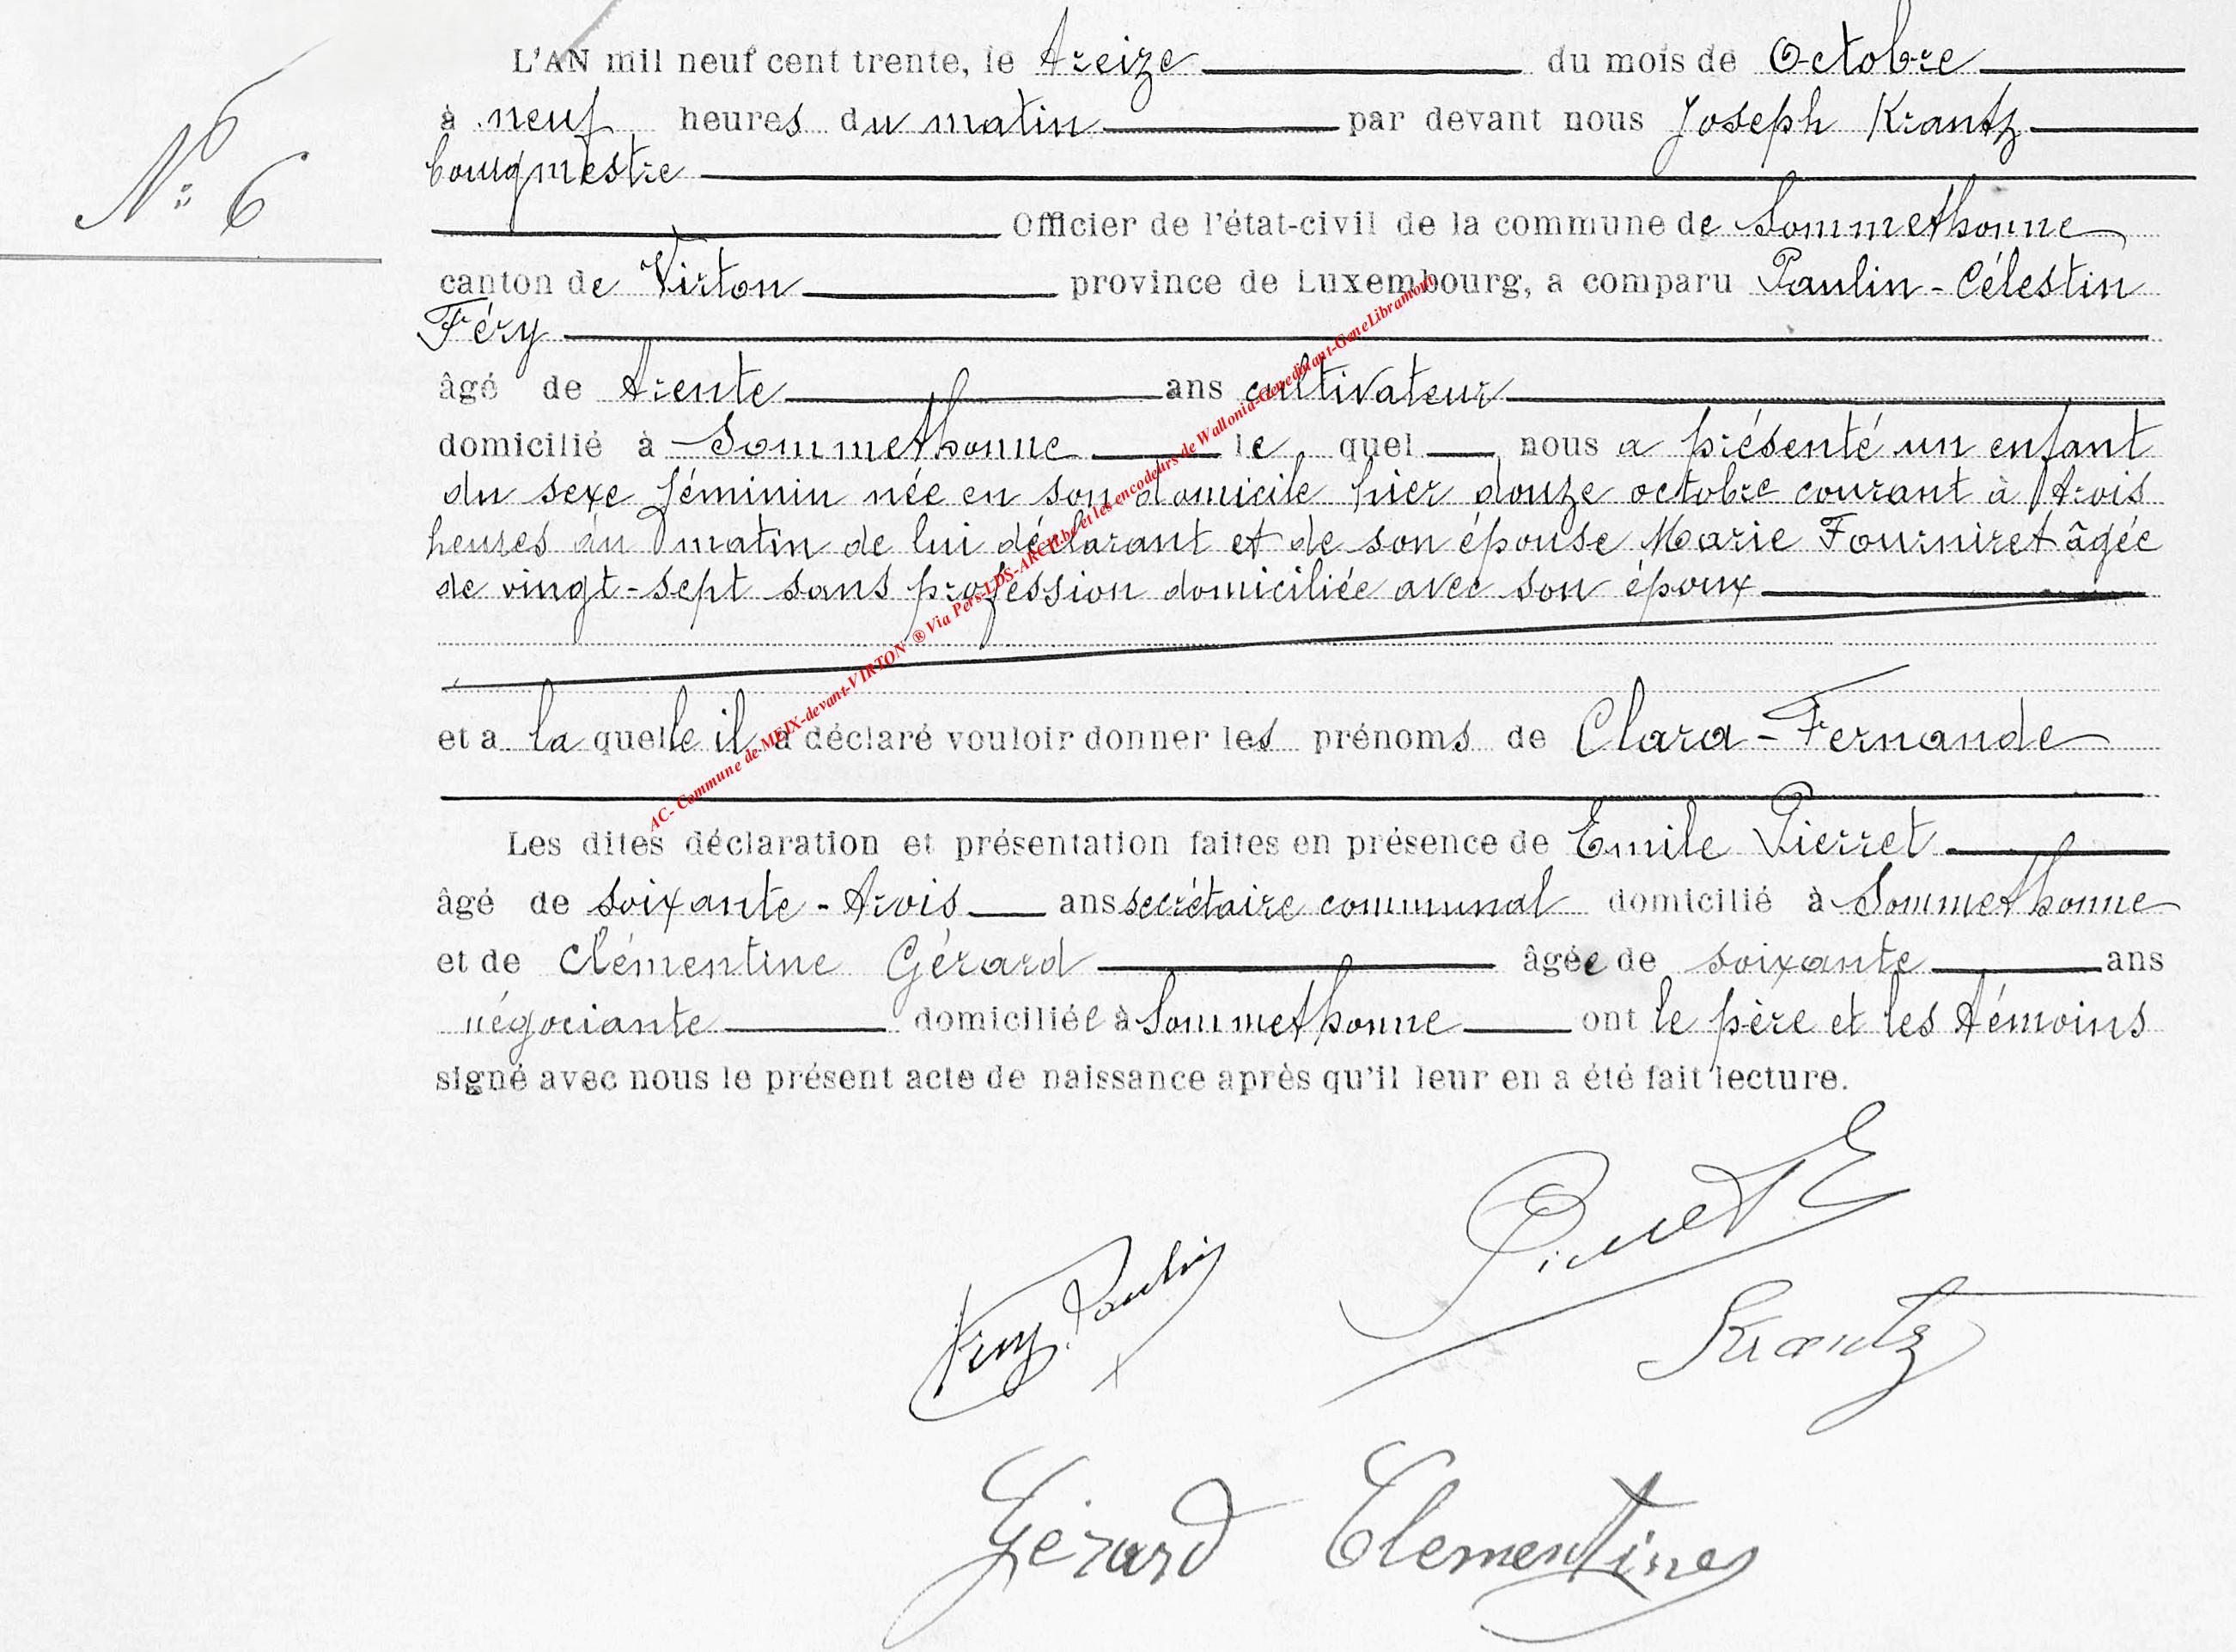 L'AN mil neuf cent trente, le treize du mois de Octobre
à neuf heures du matin par devant nous Joseph Krantz
bourgmestre
N° 6
Officier de l'état-civil de la commune de Sommethonne
canton de Virton province de Luxembourg, a comparu Paulin-Célestin
Féry
âgé de trente ans cultivateur
domicilié à Sommethonne le quel nous a présenté un enfant
du sexe féminin née en son domicile hier douze octobre courant à trois
heures du matin de lui déclarant et de son épouse Marie Fourniret âgée
de vingt-sept sans profession domiciliée avec son époux
et a la quelle il a déclaré vouloir donner les prénoms de Clara-Fernande
Les dites déclaration et présentation faites en présence de Emile Pierret
âgé de soixante-trois ans secrétaire communal domicilié à Sommethonne
et de Clémentine Gérard âgée de soixante ans
négociante domiciliée à Sommethonne ont le père et les témoins
signé avec nous le présent acte de naissance après qu'il leur en a été fait lecture.
AC- Commune de MEIX-devant-VIRTON ® Via Pers-LDS-ARCH.be et les encodeurs de Wallonia-Genedinant-GeneLibramont
Pierret E
Fery Paulin
Krantz
Gérard Clementine